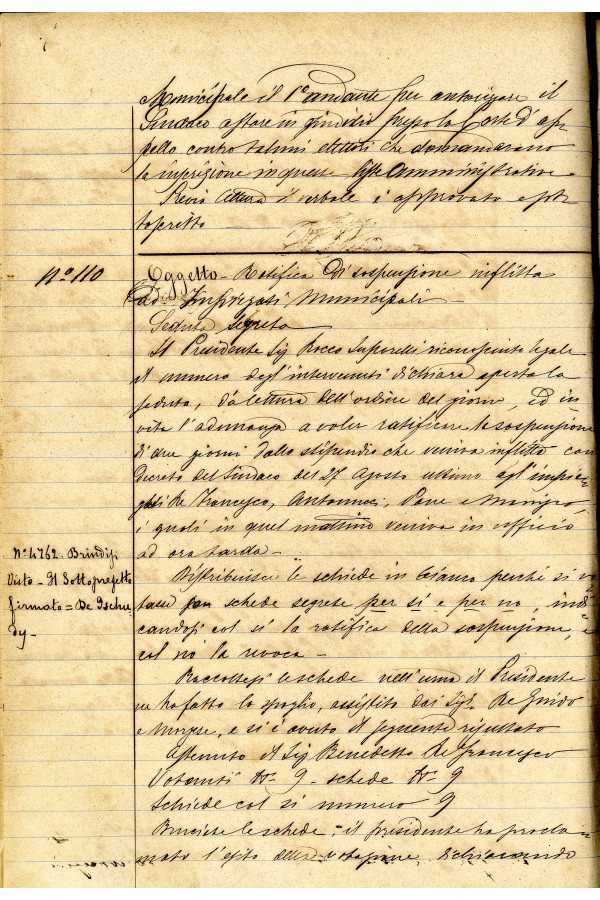 Municipale il 1º andante per autorizzare il
Sindaco a stare in giudizio presso la Corte d'ap
pello contro taluni elettori che domandarono
la inscrizione in queste liste Amministrative -
Previa lettura il verbale è approvato e sot
toscritto
Nº 110
Oggetto - Ratifica di sospensione inflitta
ad Impiegati Municipali -
Seduta segreta
Il Presidente Sig Rocco riconosciuto legale
il numero degl'intervenuti dichiara aperta la
seduta, dà lettura dell'ordine del giorno, ed in
vita l'adunanza a voler ratificare la sospensione
di due giorni dallo stipendio che veniva inflitta con
decreto del Sindaco del 27 Agosto ultimo agl'impie
gati De Francesco, Antonucci, Pane e
i quali in quel mattino veniva in ufficio
ad ora tarda -
Nº 4762. Brindisi
Visto - Il Sottoprefetto
firmato = De Tschu
dy -
Distribuisce le schiede in bianco perchè si vo
tasse per schede segrete per si e per no, indi
candosi col si la ratifica della sospensione, e
col nò la revoca -
Raccoltesi le schede nell'urna il Presidente
ne ha fatto lo spoglio, assistito dai Sigi. De Guido
e, e si è avuto il seguente risultato
Astenuto il Sig Benedetto De Francesco
Votanti Nº 9 - schede Nº 9
Schiede col si numero 9
Bruciate le schede, il presidente ha procla
mato l'esito della votazione, dichiarando